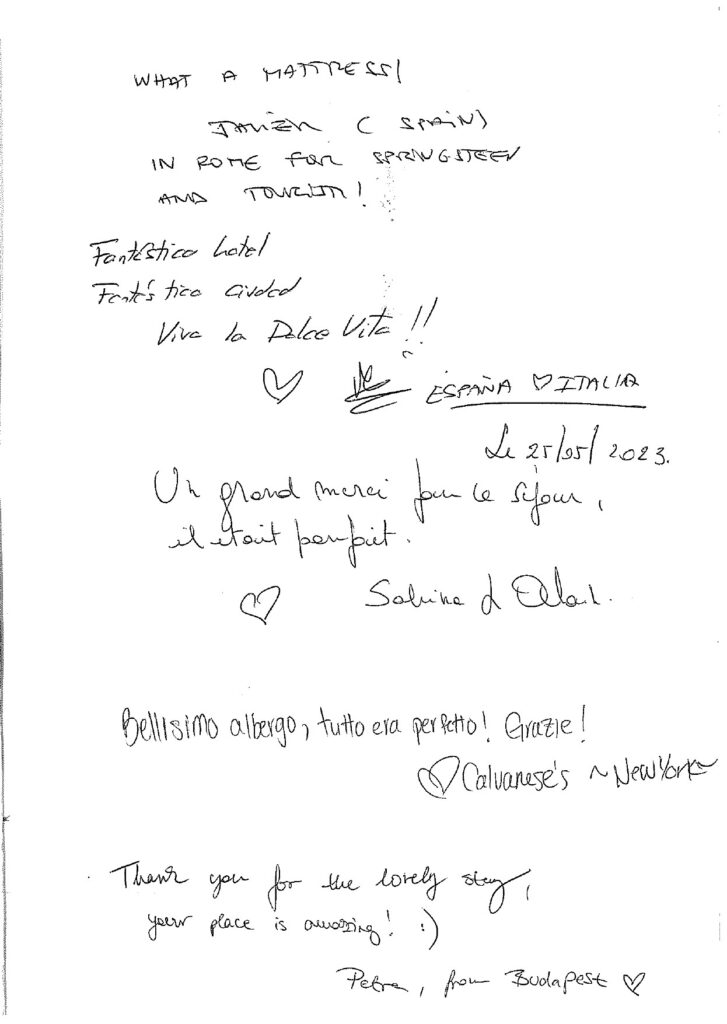 WHAT A MATTRESS!
JAVIER (SPAIN)
IN ROME FOR SPRINGSTEEN
AND TOURISM!
Fantástico hotel
Fantástica ciudad
Viva la Dolce Vita!!
♡ ESPAÑA ♡ ITALIA
Le 25/05/2023.
Un grand merci pour le séjour,
il était parfait.
♡ Sabrina & Alain.
Bellisimo albergo, tutto era perfetto! Grazie!
♡ Calvanese's ~ New York ~
Thank you for the lovely stay,
your place is amazing! :)
Petra, from Budapest ♡